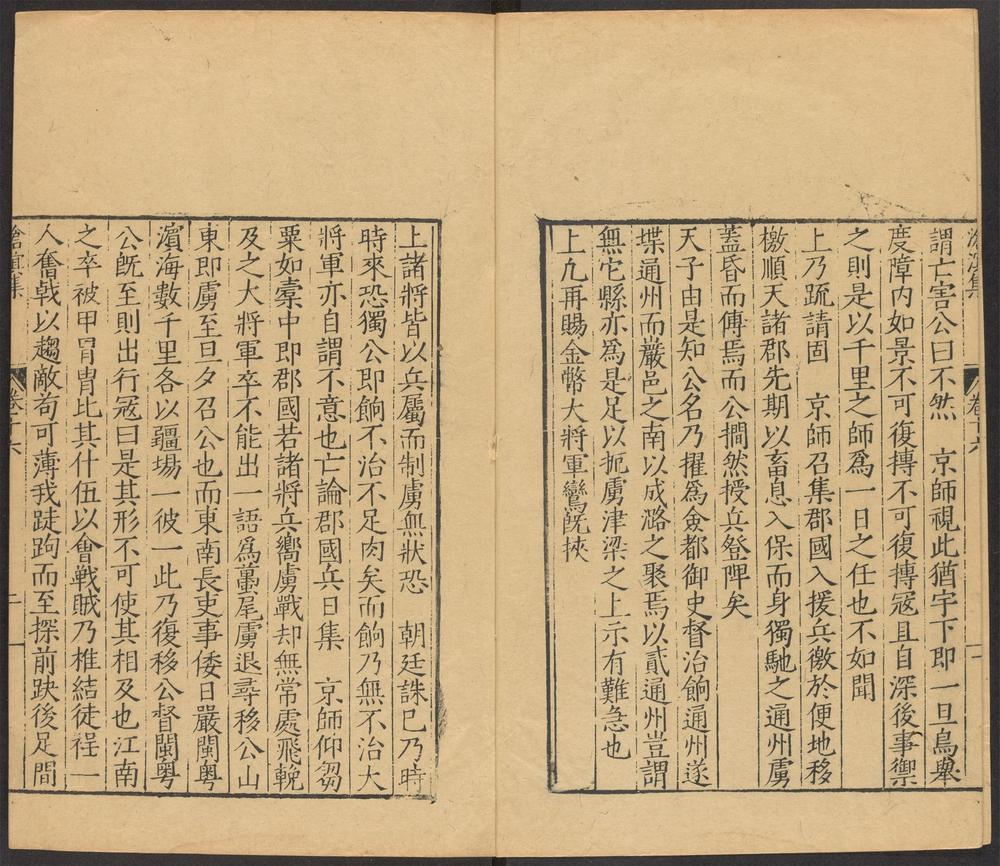 滄溟集
卷十六
謂亡害公曰不然　京師視此猶宇下即一旦鳥舉
度障内如景不可復摶不可復搏寇且自深後事禦
之則是以千里之師爲一日之任也不如聞
上乃疏請固　京師召集郡國入援兵徼於便地移
檄順天諸郡先期以畜息入保而身獨馳之通州虜
蓋昏而傳焉而公撊然授兵登陴矣
天子由是知公名乃擢爲僉都御史督治餉通州遂
堞通州而嚴邑之南以成潞之聚焉以貳通州豈謂
無它縣亦爲是足以扼虜津梁之上示有難急也
上凢再賜金幣大將軍鸞旣挾
上諸將皆以兵屬而制虜無狀恐　朝廷誅已乃時
時來恐獨公即餉不治不足肉矣而餉乃無不治大
將軍亦自謂不意也亡論郡國兵日集　京師仰芻
粟如橐中即郡國若諸將兵嚮虜戰却無常處飛輓
及之大將軍卒不能出一語爲蠆尾虜退尋移公山
東即虜至旦夕召公也而東南長吏事倭日嚴閩粤
濵海數千里各以疆埸一彼一此乃復移公督閩粤
公旣至則出行冦曰是其形不可使其相及也江南
之卒被甲冒冑比其什伍以會戰賊乃椎結徒裎一
人奮戟以趨敵茍可薄我跿跔而至探前趹後足間
滄溟集
卷十六